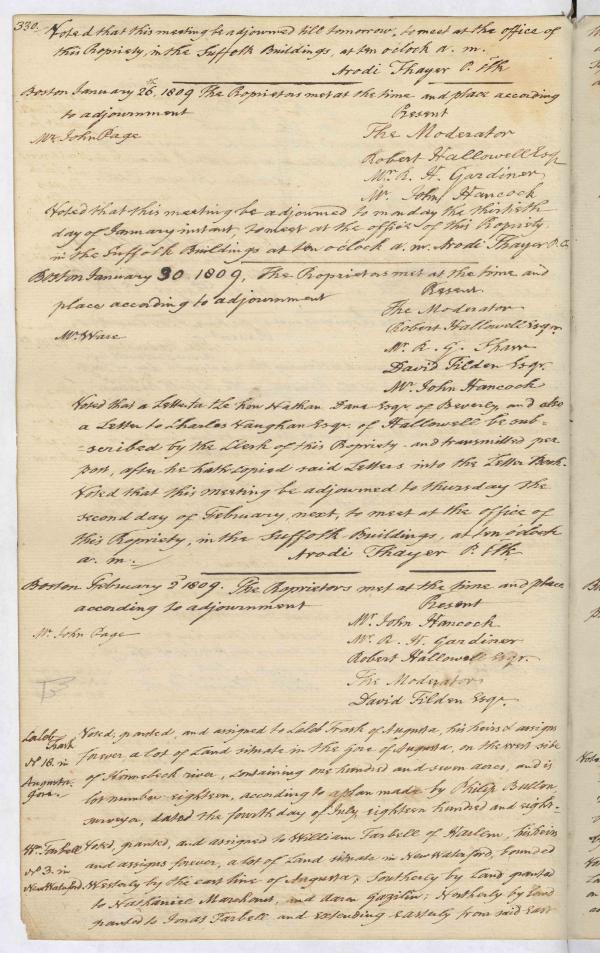 330.
Voted that this meeting be adjourned till tomorrow, to meet at the office of
this Propriety, in the Suffolk Buildings, at ten o'clock a. m.
Arodi Thayer P. Clk
Boston January 26th, 1809 The Proprietors met at the time and place according
to adjournment
Present
Mr. John Page
The Moderator
Robert Hallowell Esqr
Mr. R. H. Gardiner
Mr. John Hancock
Voted that this meeting be adjourned to monday the thirtieth
day of January instant, to meet at the office of this Propriety,
in the Suffolk Buildings at ten o'clock a. m. Arodi Thayer P. C.
Boston January 30 1809, The Proprietors met at the time and
place according to adjournment
Present
The Moderator
Robert Hallowell Esqr.
Mr. Ware
Mr. R. G. Shaw
David Tilden Esqr.
Mr. John Hancock
Voted that a Letter to the hon Nathan Dane Esqr of Beverly, and also
a Letter to Charles Vaughan Esqr. of Hallowell be sub-
=scribed by the Clerk of this Propriety and transmitted per
Post, after he hath copied said Letters into the Letter Book.
Voted that this meeting be adjourned to thursday the
second day of February, next, to meet at the office of
this Propriety, in the Suffolk Buildings, at ten o'clock
a. m.
Arodi Thayer P. Clk
Boston February 2d 1809. The Proprietors met at the time and place
according to adjournment
Present
Mr. John Page
Mr. John Hancock
Mr. R. H. Gardiner
Robert Hallowell Esqr.
The Moderator
David Tilden Esqr.
Caleb Trask
No 18. in
Augusta
Gore.
Voted, granted, and assigned to Caleb Trask of Augusta, his heirs & assigns
forever a lot of Land situate in the Gore of Augusta, on the west side
of Kennebeck river, containing one hundred and seven acres, and is
lot number eighteen, according to a plan made by Philip Bullen,
surveyor, dated the fourth day of July, eighteen hundred and eight.
Wm. Tarbell
No 3. in
New Waterford.
Voted, granted, and assigned to William Tarbell of Harlem, his heirs
and assigns forever, a lot of Land situate in New Waterford, bounded
Westerly by the east line of Augusta; Southerly by Land granted
to Nathaniel and Northerly by Land
granted to Jonas Tarbell and extending easterly from said East